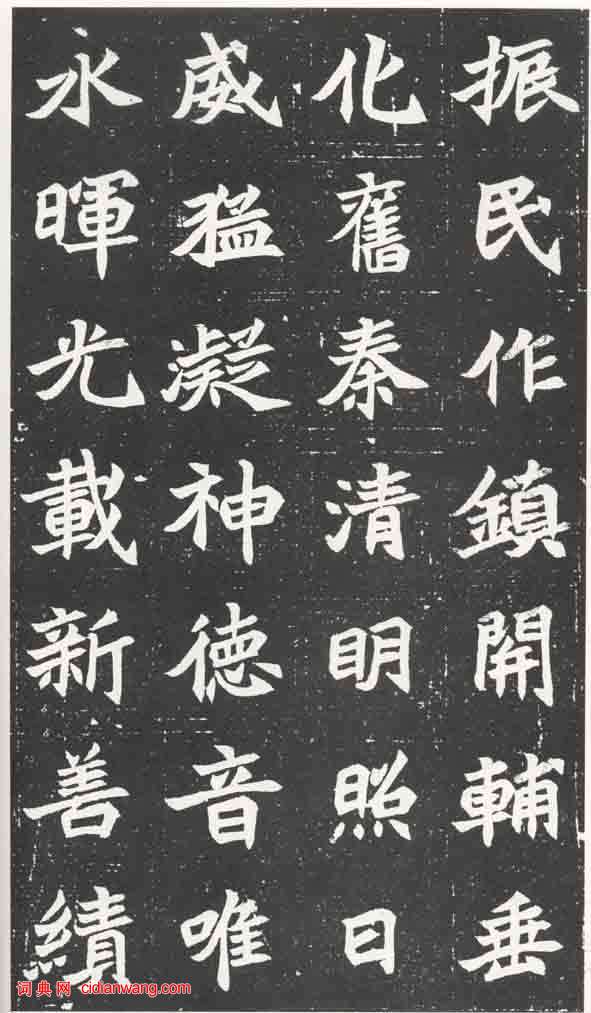 振民作鎮開輔垂
化舊秦清明照日
威猛凝神德音唯
永暉光載新善績
词典网 cidianwang.com